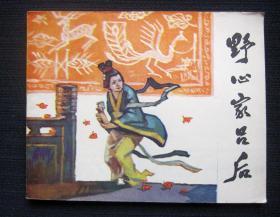 野心家吕后